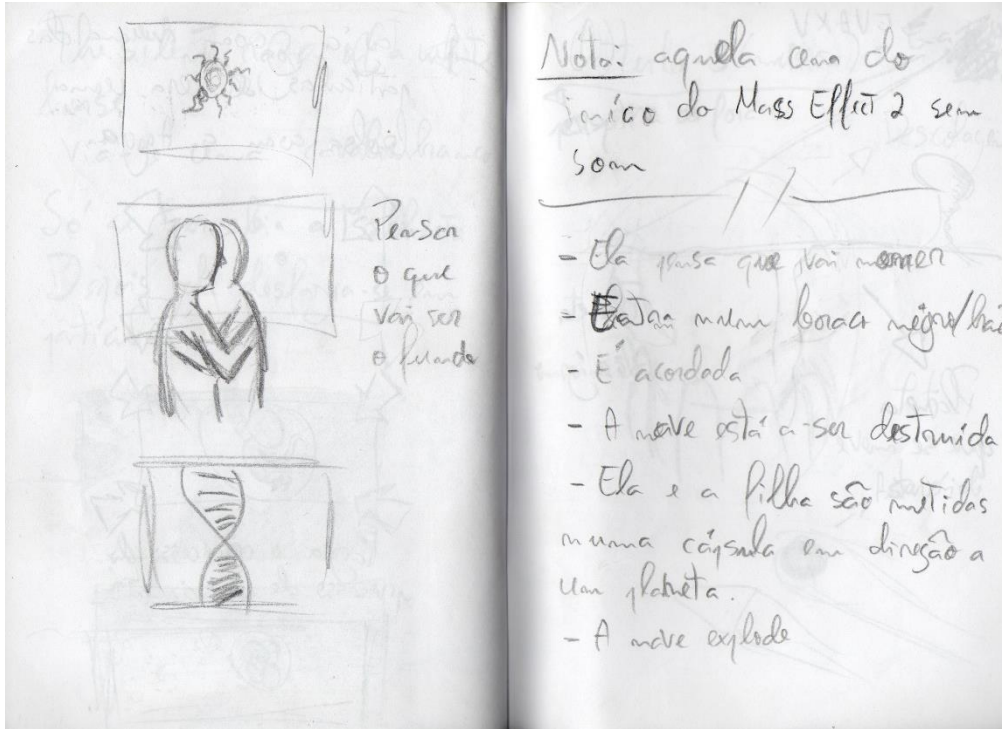 Pensar
o que
vai ser
o fundo
Nota: aquela cena do
início do Mass Effect 2 sem
som
- Ela pensa que vai morrer
- Entram num buraco negro/
- É acordada
- A nave está a ser destruida
- Ela e a filha são metidas
numa cápsula em direção a
um planeta.
- A nave explode